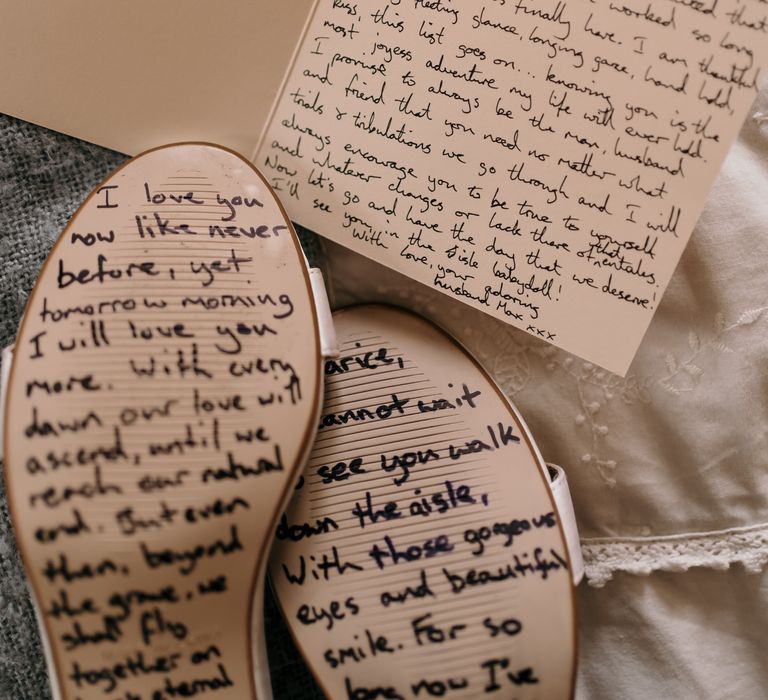 worked so long
finally have. I am thankful
fleeting glance, longing gaze, hand hold,
kiss, this list goes on... knowing you is the
most joyess adventure my life will ever had.
I promise to always be the man, husband
and friend that you need no matter what
trials & tribulations we go through and I will
always encourage you to be true to yourself
and whatever changes or lack there of that entales.
Now let's go and have the day that we deserve!
I'll see you in the aisle babydoll!
With love, your adoring
husband Max xxx
I love you
now like never
before, yet
tomorrow morning
I will love you
more. With every
dawn our love will
ascend, until we
reach our natural
end. But even
then, beyond
the grave, we
shall flip
together on
eternal
arice,
cannot wait
see you walk
down the aisle,
With those gorgeous
eyes and beautiful
smile. For so
long now I've